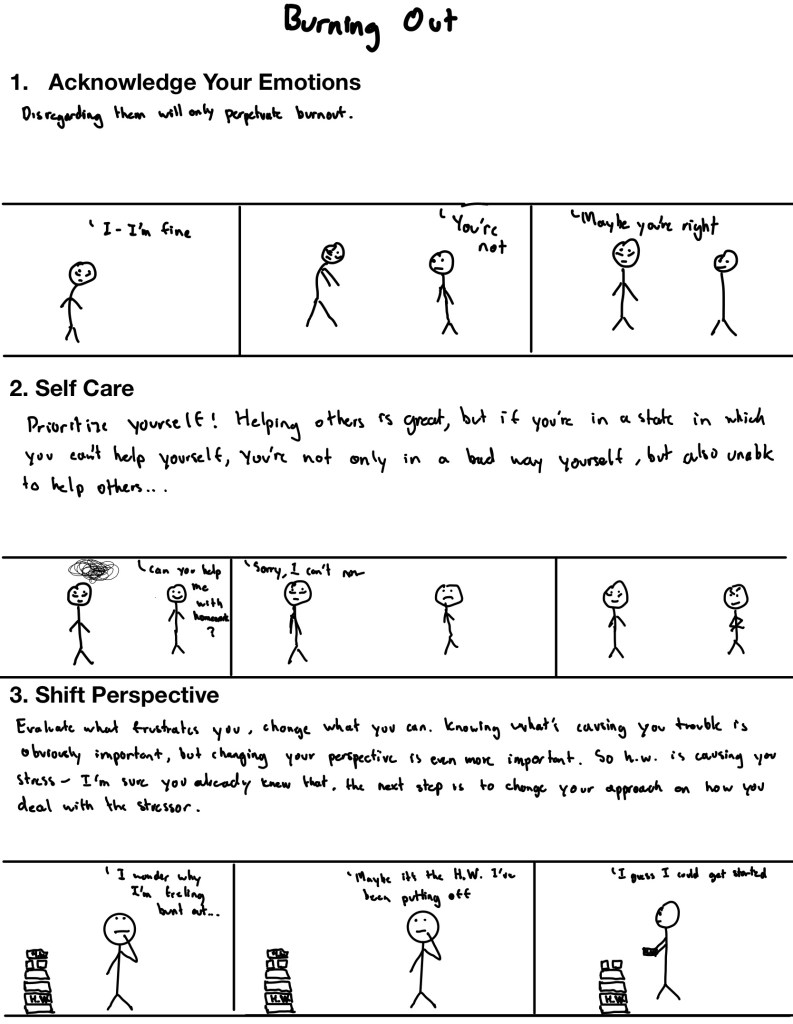 Burning Out
1. Acknowledge Your Emotions
Disregarding them will only perpetuate burnout.
I-I'm fine
You're
not
Maybe you're right
2. Self Care
Prioritize yourself! Helping others is great, but if you're in a state in which
you can't help yourself, you're not only in a bad way yourself, but also unable
to help others...
Can you help
me
with
homework
?
Sorry, I can't now
3. Shift Perspective
Evaluate what frustrates you, change what you can. Knowing what's causing you trouble is
obviously important, but changing your perspective is even more important. So h.w. is causing you
stress - I'm sure you already knew that, the next step is to change your approach on how you
deal with the stressor.
I wonder why
I'm feeling
burnt out...
H.W.
Maybe it's the H.W. I've
been putting off
H.W.
I guess I could get started
H.W.